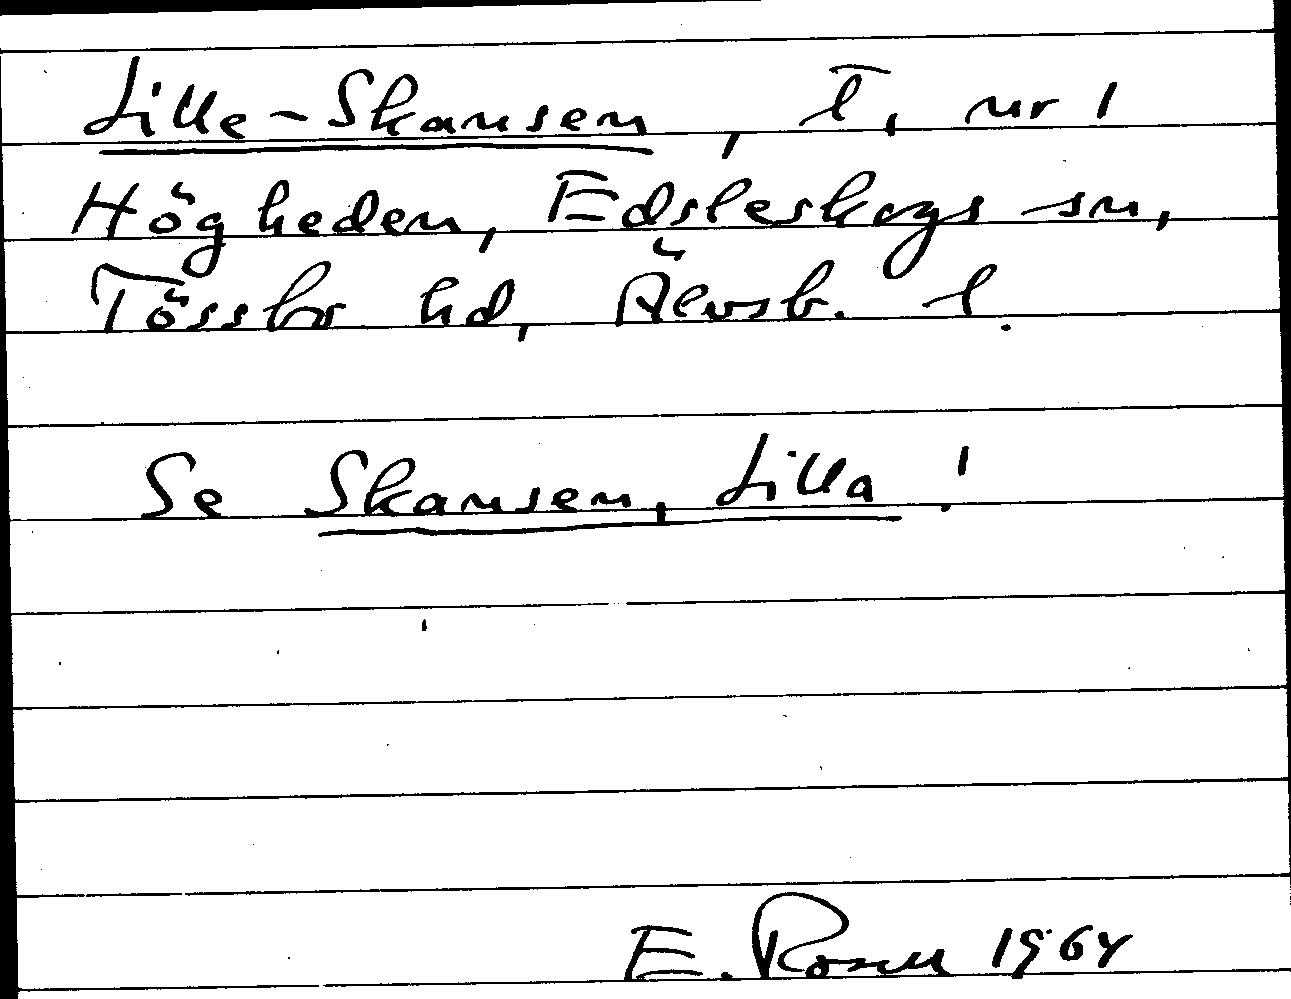 Lille-Skansen, l, nr 1
Högheden, Edsleskogs sn,
Tössbo hd, Älvsb. l.
Se Skansen, Lilla!
E. Rosell 1964